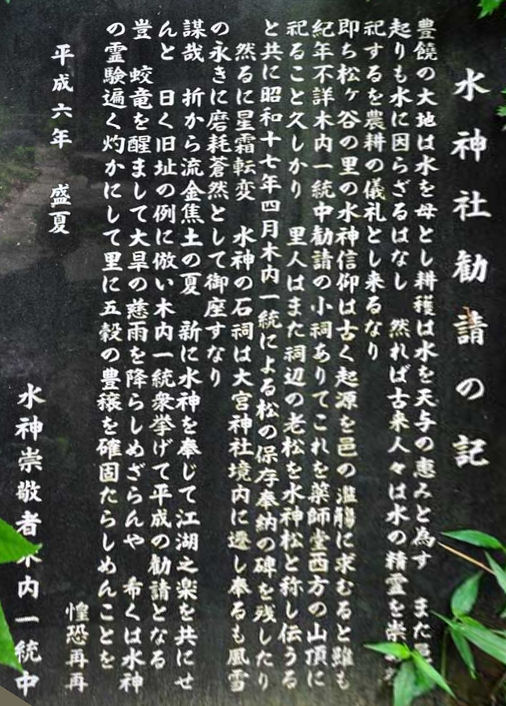 水神社勧請の記
豊饒の大地は水を母とし耕穫は水を天与の恵みと為す　また
起りも水に因らざるはなし　然れば古来人々は水の精霊を崇
祀するを農耕の儀礼とし来るなり
即ち松ヶ谷の里の水神信仰は古く起源を邑の濫觴に求むると雖も
紀年不詳木内一統中勧請の小祠ありてこれを薬師堂西方の山頂に
祀ること久しかり　里人はまた祠辺の老松を水神松と称し伝うる
と共に昭和十七年四月木内一統による松の保存奉納の碑を残したり
然るに星霜転変　水神の石祠は大宮神社境内に遷し奉るも風雪
の永きに磨耗蒼然として御座すなり
謀哉　折から流金焦土の夏　新に水神を奉じて江湖之楽を共にせ
んと　曰く旧址の例に倣い木内一統衆挙げて平成の勧請となる
豈　蛟竜を醒まして大旱の慈雨を降らしめざらんや　希くは水神
の霊験遍く灼かにして里に五穀の豊穣を確固たらしめんことを
惶恐再再
平成六年　盛夏
水神崇敬者木内一統中